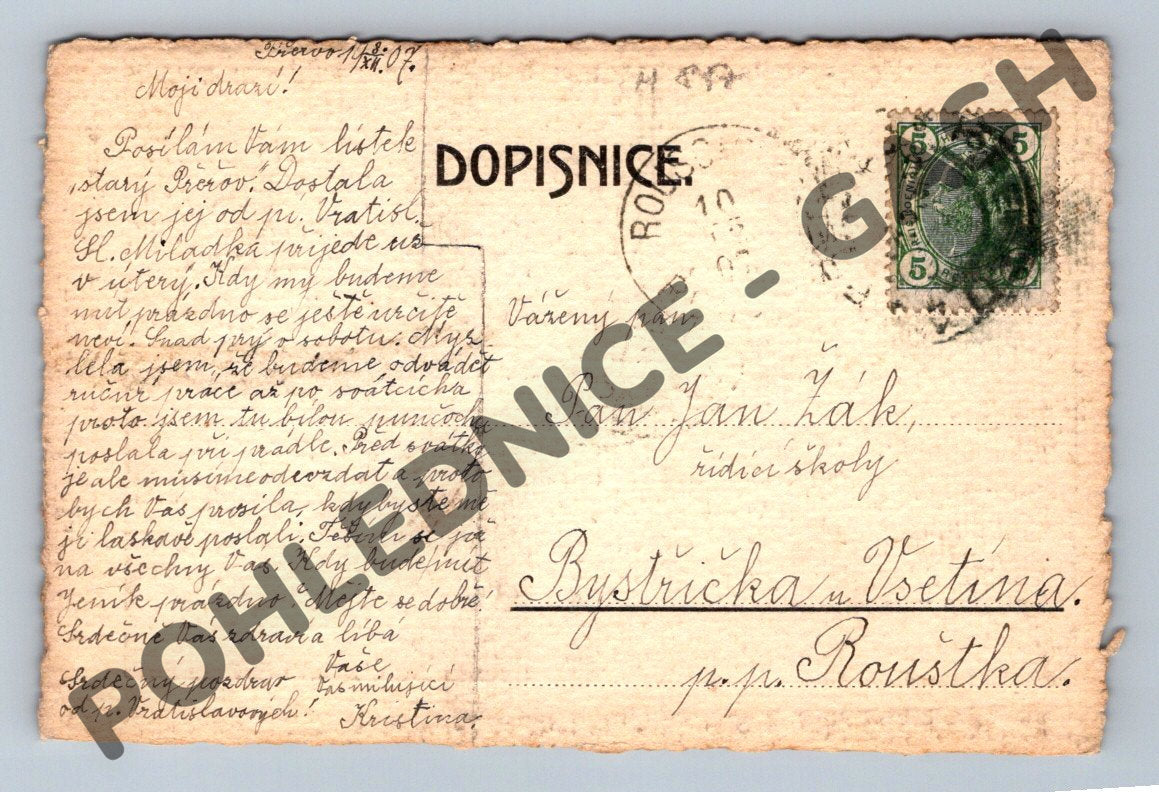 Přerov 8./XII. 07.
Moji drazí!
Posílám Vám lístek
"starý Přerov". Dostala
jsem jej od pí. Vratisl.
Sl. Miladka přijede už
v úterý. Kdy my budeme
mít prázdno se ještě určitě
neví. Snad prý v sobotu. Mys-
lela jsem, že budeme odvádět
ruční práce až po svátcích a
proto jsem tu bílou punčochu
poslala při prádle. Před svátky
je ale musíme odevzdat a proto
bych Vás prosila, kdybyste mě
ji laskavě poslali. Těším se již
na všechny Vás. Kdy bude mít
Jeník prázdno? Mějte se dobře!
Srdečně Vás zdraví a líbá
Vaše
Vás milující
Kristina.
Srdečný pozdrav
od p. Vratislavových!
H 887
DOPISNICE.
ROUS
10
5
5
5
Vážený pán
Pan Jan Žák,
řídící školy
Bystřička u Vsetína.
p.p. Rouštka.
POHLEDNICE - G SH